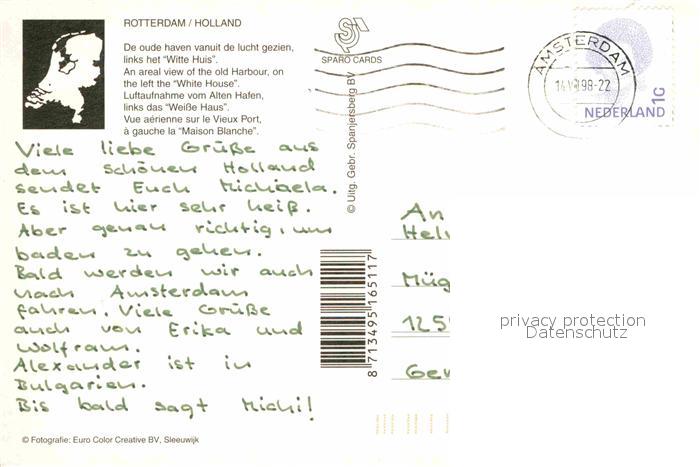 ROTTERDAM / HOLLAND
De oude haven vanuit de lucht gezien,
links het "Witte Huis".
An areal view of the old Harbour, on
the left the "White House".
Luftaufnahme vom Alten Hafen,
links das "Weiße Haus".
Vue aérienne sur le Vieux Port,
à gauche la "Maison Blanche".
SPARO CARDS
© Uitg. Gebr. Spanjersberg BV
AMSTERDAM
98-22
NEDERLAND 1G
Viele liebe Grüße aus
dem schönen Holland
sendet Euch Michaela.
Es ist hier sehr heiß.
Aber genau richtig, um
baden zu gehen.
Bald werden wir auch
nach Amsterdam
fahren. Viele Grüße
auch von Erika und
Wolfram.
Alexander ist in
Bulgarien.
Bis bald sagt Michi!
An
Müg
125
8 713495 165117
privacy protection
Datenschutz
© Fotografie: Euro Color Creative BV, Sleeuwijk